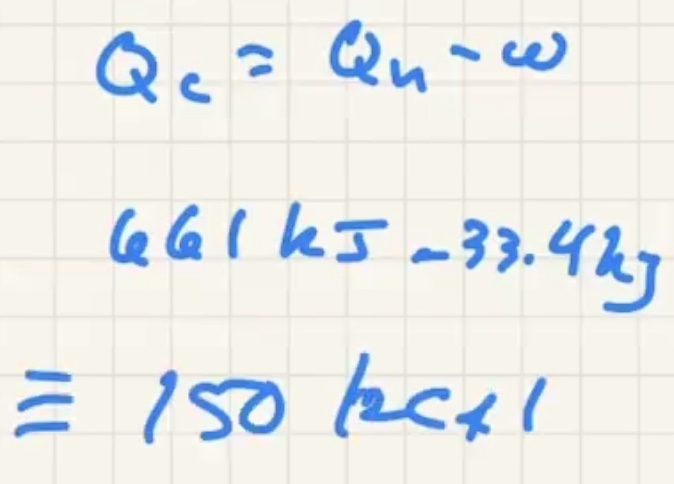 Qc = Qh - w
661 kJ - 33.4kJ
≡ 150 kcal